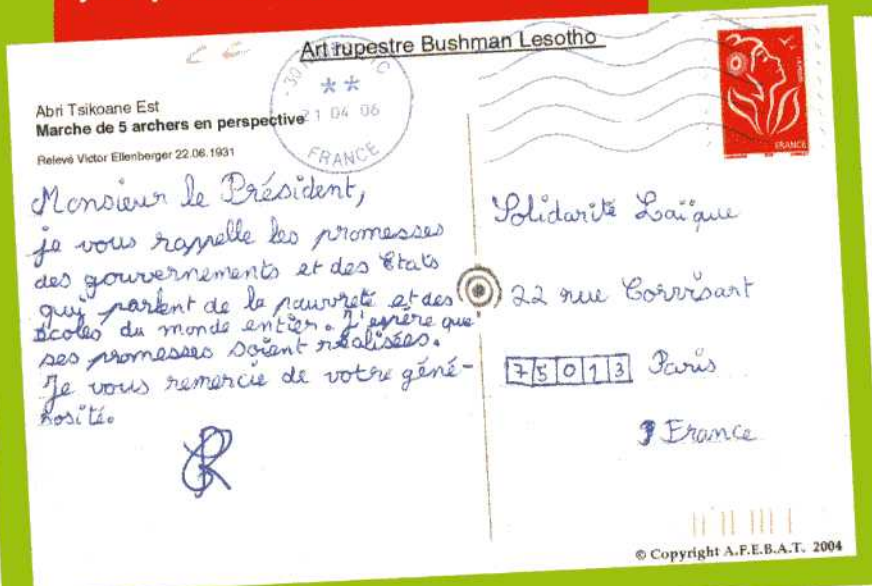 Art rupestre Bushman Lesotho
Abri Tsikoane Est
Marche de 5 archers en perspective
Relevé Victor Ellenberger 22.06.1931
21 04 06
FRANCE
FRANCE
Monsieur le Président,
je vous rappelle les promesses
des gouvernements et des États
qui parlent de la pauvreté et des
écoles du monde entier. J'espère que
ses promesses soient réalisées.
Je vous remercie de votre géné-
rosité.
Solidarité Laïque
22 rue Corvisart
75013 Paris
France
© Copyright A.F.E.B.A.T. 2004